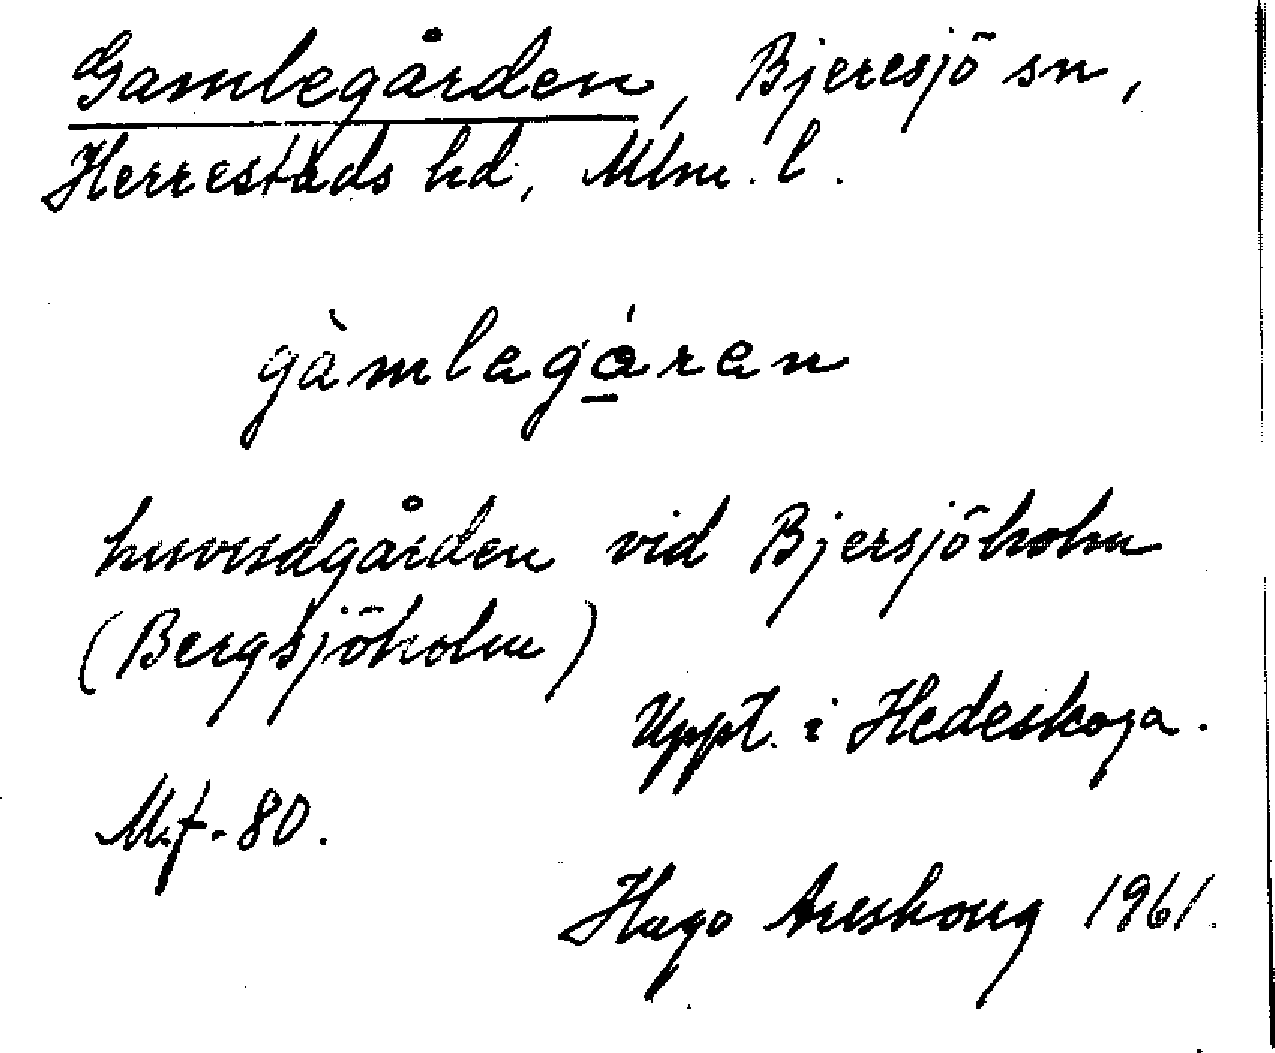 Gamlegården, Bjeresjö sn,
Herrestads hd, Mlm. l.
gàmlagá̱ran
huvudgården vid Bjersjöholm
(Bergsjöholm)
Uppt. i Hedeskoga.
M.f. 80.
Hugo Areskoug 1961.